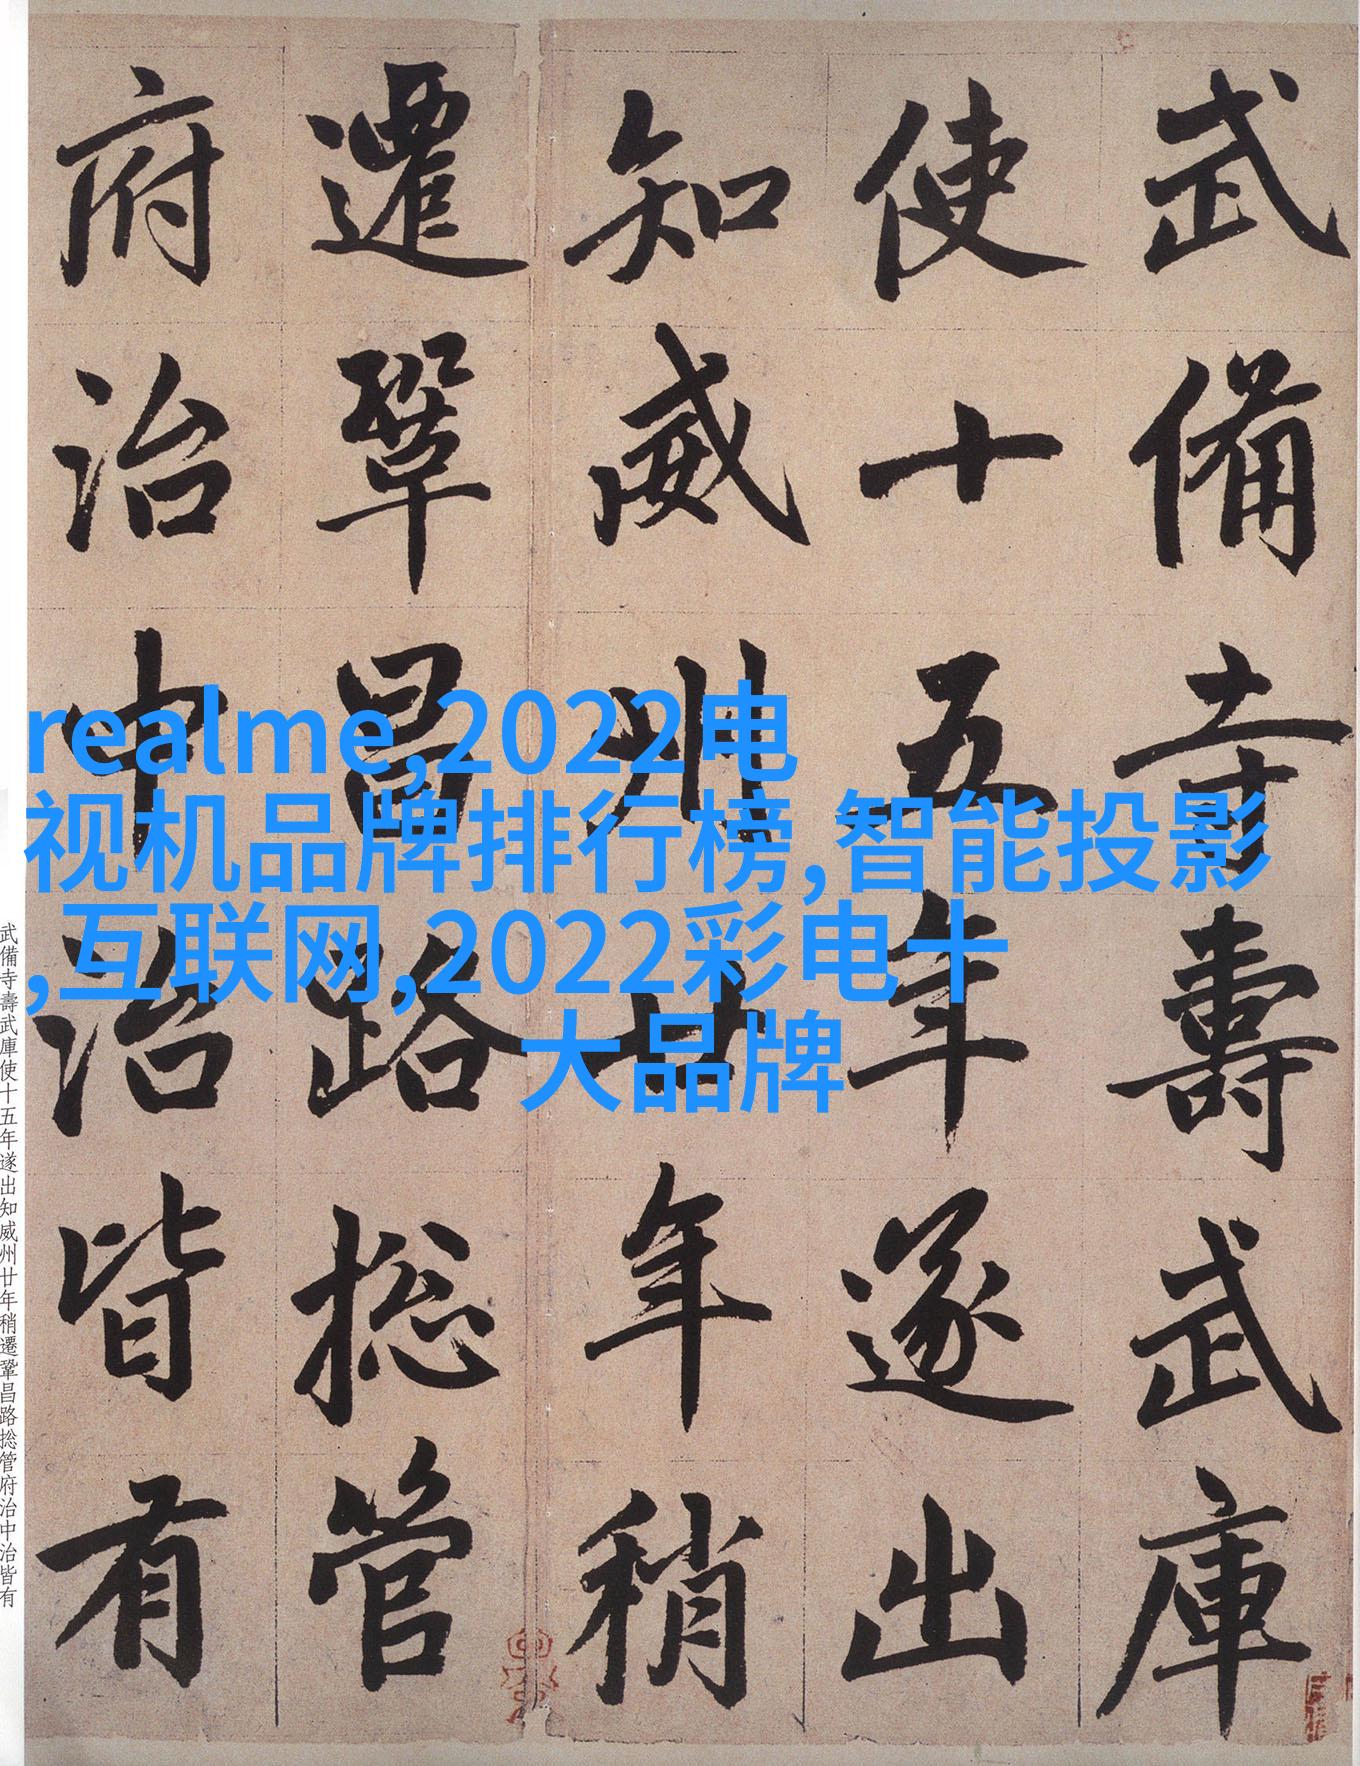 武備寺壽武庫
使十五年遂出
知威州廿年稍
遷鞏昌路捴管
府治中治皆有
realme,2022电
视机品牌排行榜,智能投影
,互联网,2022彩电十
大品牌
武備寺壽武庫使十五年遂出知威州廿年稍遷鞏昌路捴管府治中治皆有